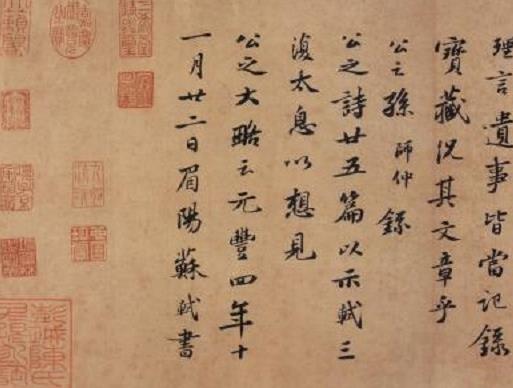 理言遺事皆當記錄
寶藏況其文章乎
公之孫師仲錄
公之詩廿五篇以示軾三
復太息以想見
公之大略云元豐四年十
一月廿二日眉陽蘇軾書